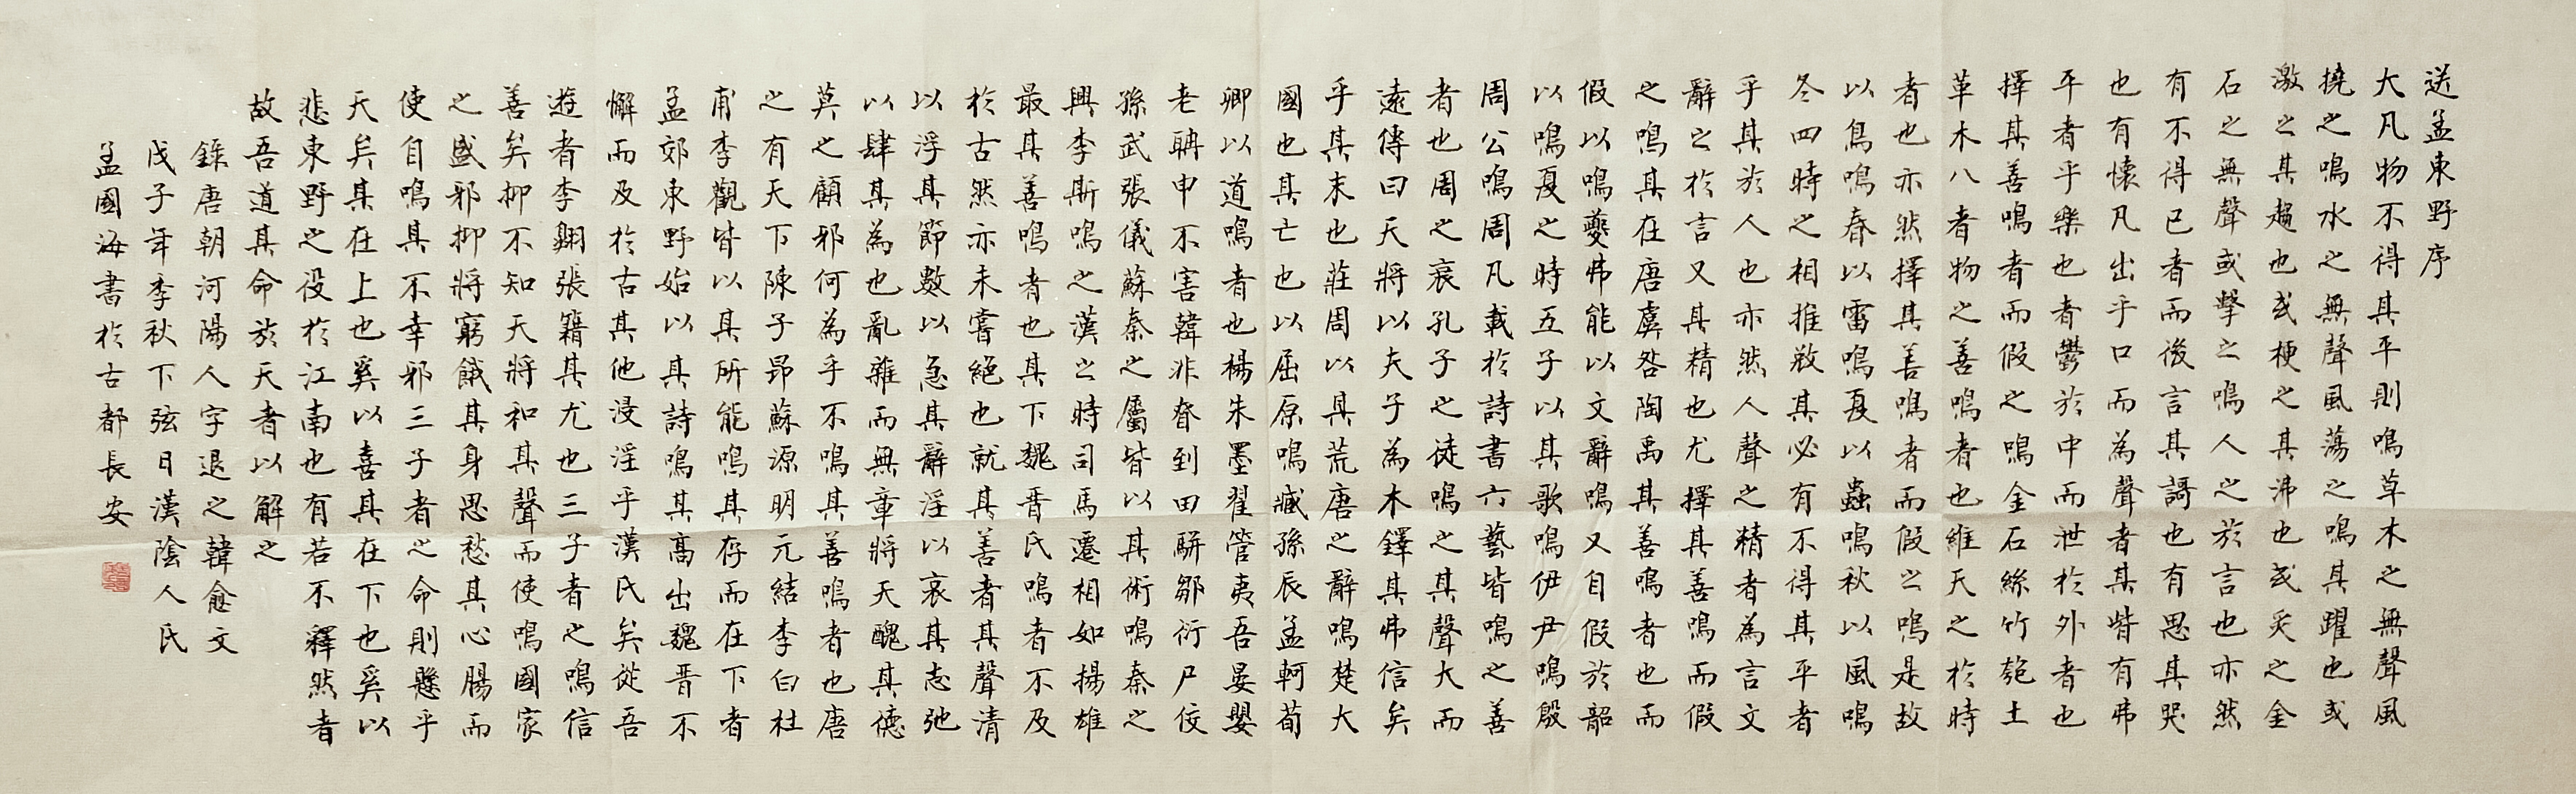 送孟東野序
大凡物不得其平則鳴草木之無聲風
撓之鳴水之無聲風蕩之鳴其躍也或
激之其趨也或梗之其沸也或炙之金
石之無聲或擊之鳴人之於言也亦然
有不得已者而後言其謌也有思其哭
也有懷凡出乎口而為聲者其皆有弗
平者乎樂也者鬱於中而泄於外者也
擇其善鳴者而假之鳴金石絲竹匏土
革木八者物之善鳴者也維天之於時
者也亦然擇其善鳴者而假之鳴是故
以鳥鳴春以雷鳴夏以蟲鳴秋以風鳴
冬四時之相推敚其必有不得其平者
乎其於人也亦然人聲之精者為言文
辭之於言又其精也尤擇其善鳴而假
之鳴其在唐虞咎陶禹其善鳴者也而
假以鳴夔弗能以文辭鳴又自假於韶
以鳴夏之時五子以其歌鳴伊尹鳴殷
周公鳴周凡載於詩書六藝皆鳴之善
者也周之衰孔子之徒鳴之其聲大而
遠傳曰天將以夫子為木鐸其弗信矣
乎其末也莊周以其荒唐之辭鳴楚大
國也其亡也以屈原鳴臧孫辰孟軻荀
卿以道鳴者也楊朱墨翟管夷吾晏嬰
老聃申不害韓非眘到田駢鄒衍尸佼
孫武張儀蘇秦之屬皆以其術鳴秦之
興李斯鳴之漢之時司馬遷相如揚雄
最其善鳴者也其下魏晋氏鳴者不及
於古然亦未嘗絕也就其善者其聲清
以浮其節數以急其辭淫以哀其志弛
以肆其為也亂雜而無章將天醜其德
莫之顧邪何為乎不鳴其善鳴者也唐
之有天下陳子昂蘇源明元結李白杜
甫李觀皆以其所能鳴其存而在下者
孟郊東野始以其詩鳴其高出魏晋不
懈而及於古其他浸淫乎漢氏矣從吾
遊者李翱張籍其尤也三子者之鳴信
善矣抑不知天將和其聲而使鳴國家
之盛邪抑將窮餓其身思愁其心腸而
使自鳴其不幸邪三子者之命則懸乎
天矣其在上也奚以喜其在下也奚以
悲東野之役於江南也有若不釋然者
故吾道其命於天者以解之
錄唐朝河陽人字退之韓愈文
戊子年季秋下弦日漢陰人氏
孟國海書於古都長安